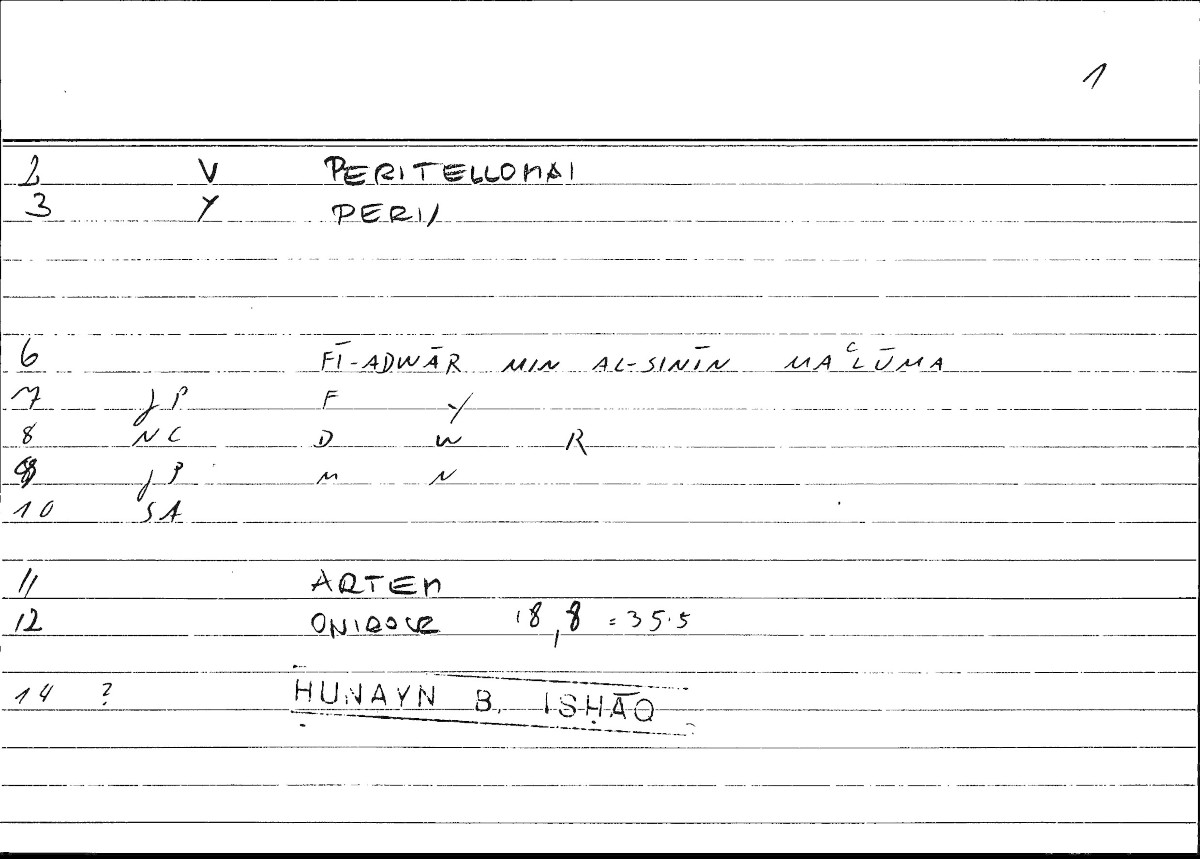 1
2 V PERITELLOMAI
3 Y PERI/
6 FĪ-ADWĀR MIN AL-SINĪN MAᶜLŪMA
7 JP F Y
8 NC D W R
9 JP M N
10 SA
11 ARTEM
12 ONIROCR 18,8 = 35.5
14 ? HUNAYN B. ISḤĀQ